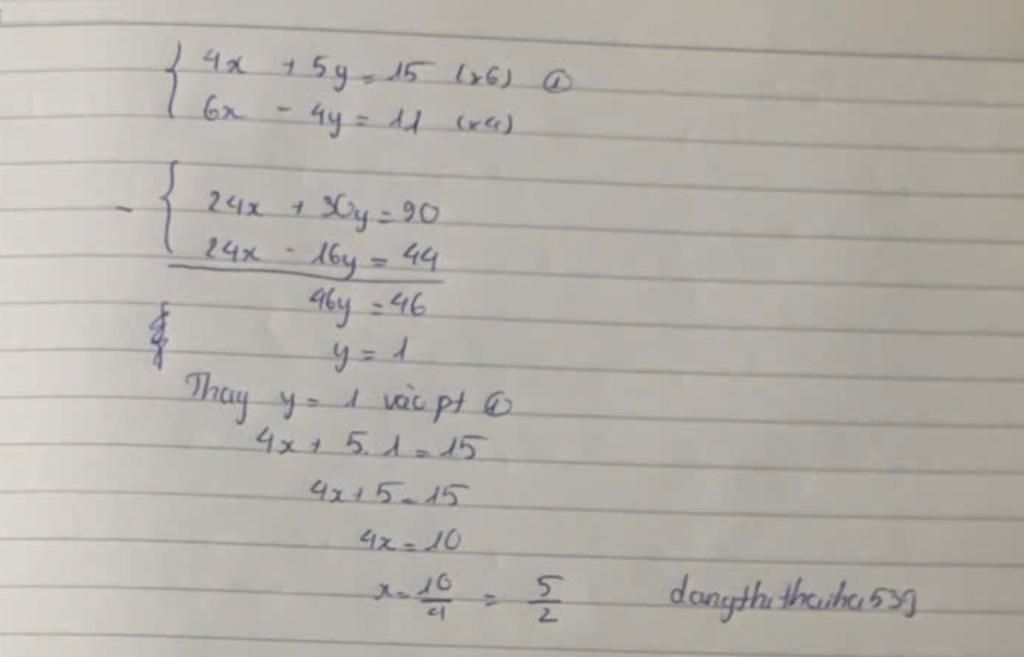 4x + 5y = 15 (x6) ①
6x - 4y = 11 (x4)
- 24x + 30y = 90
24x - 16y = 44
46y = 46
y = 1
Thay y = 1 vào pt ①
4x + 5.1 = 15
4x + 5 = 15
4x = 10
x = 10/4 = 5/2 dangthithaiha539